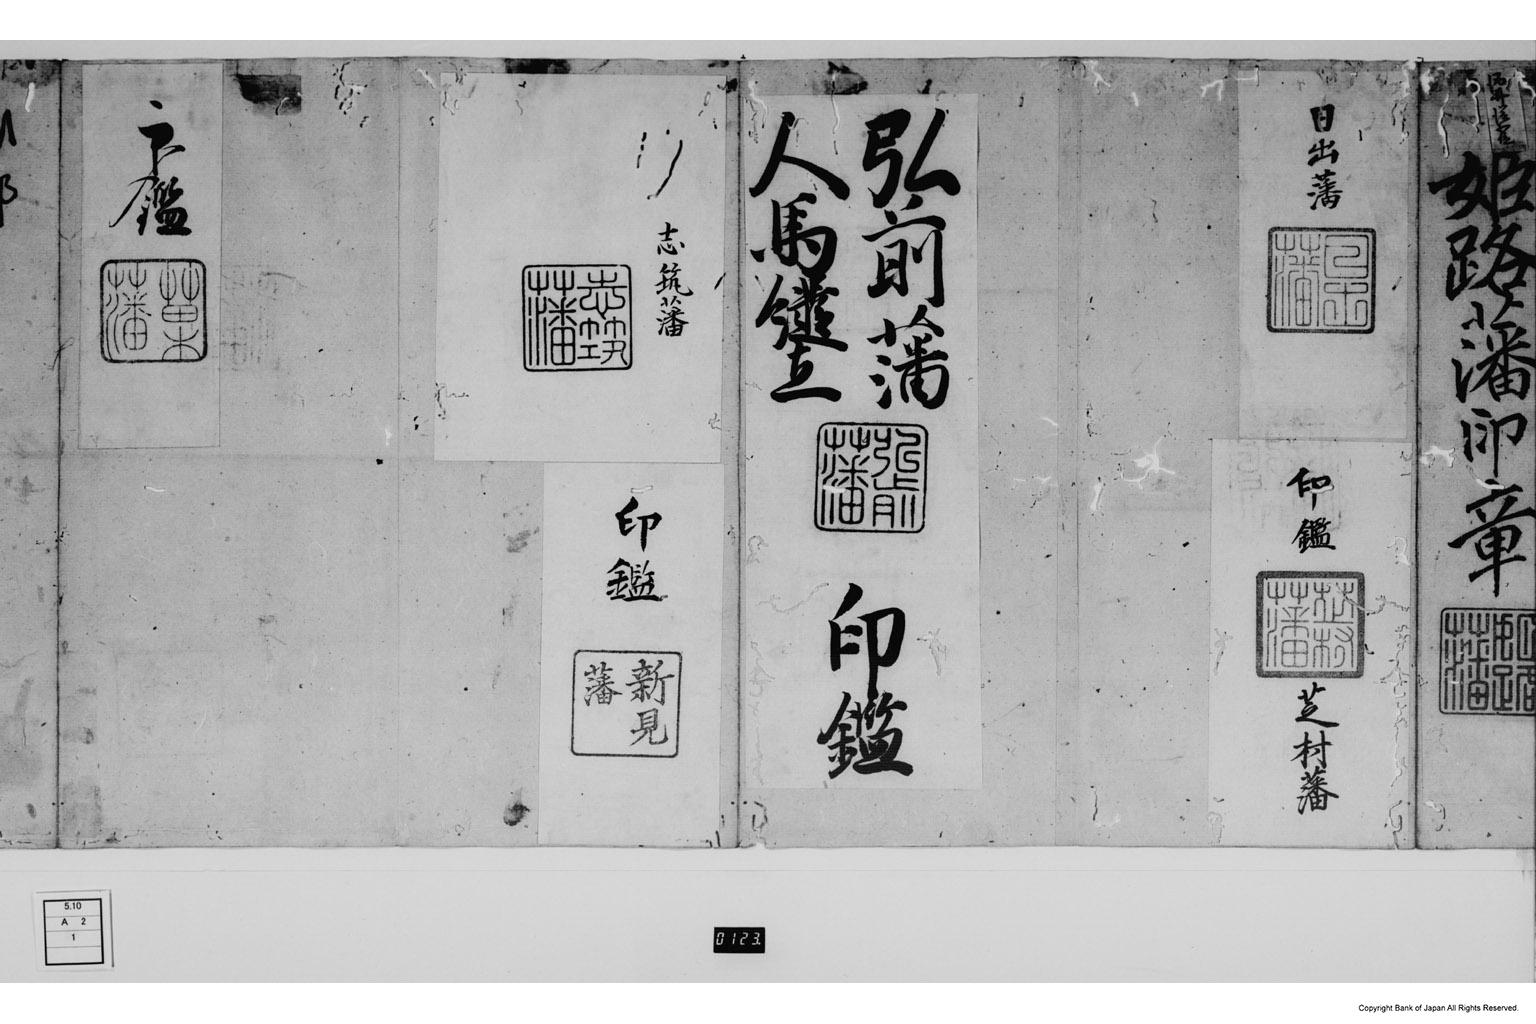 姫路藩印章
日出藩
印鑑
芝村藩
芝村藩
弘前藩
人馬鑑立
弘前藩
印鑑
志筑藩
志筑藩
印鑑
新見
藩
印鑑
苗木藩
5.10
A 2
1
0123.
Copyright Bank of Japan All Rights Reserved.